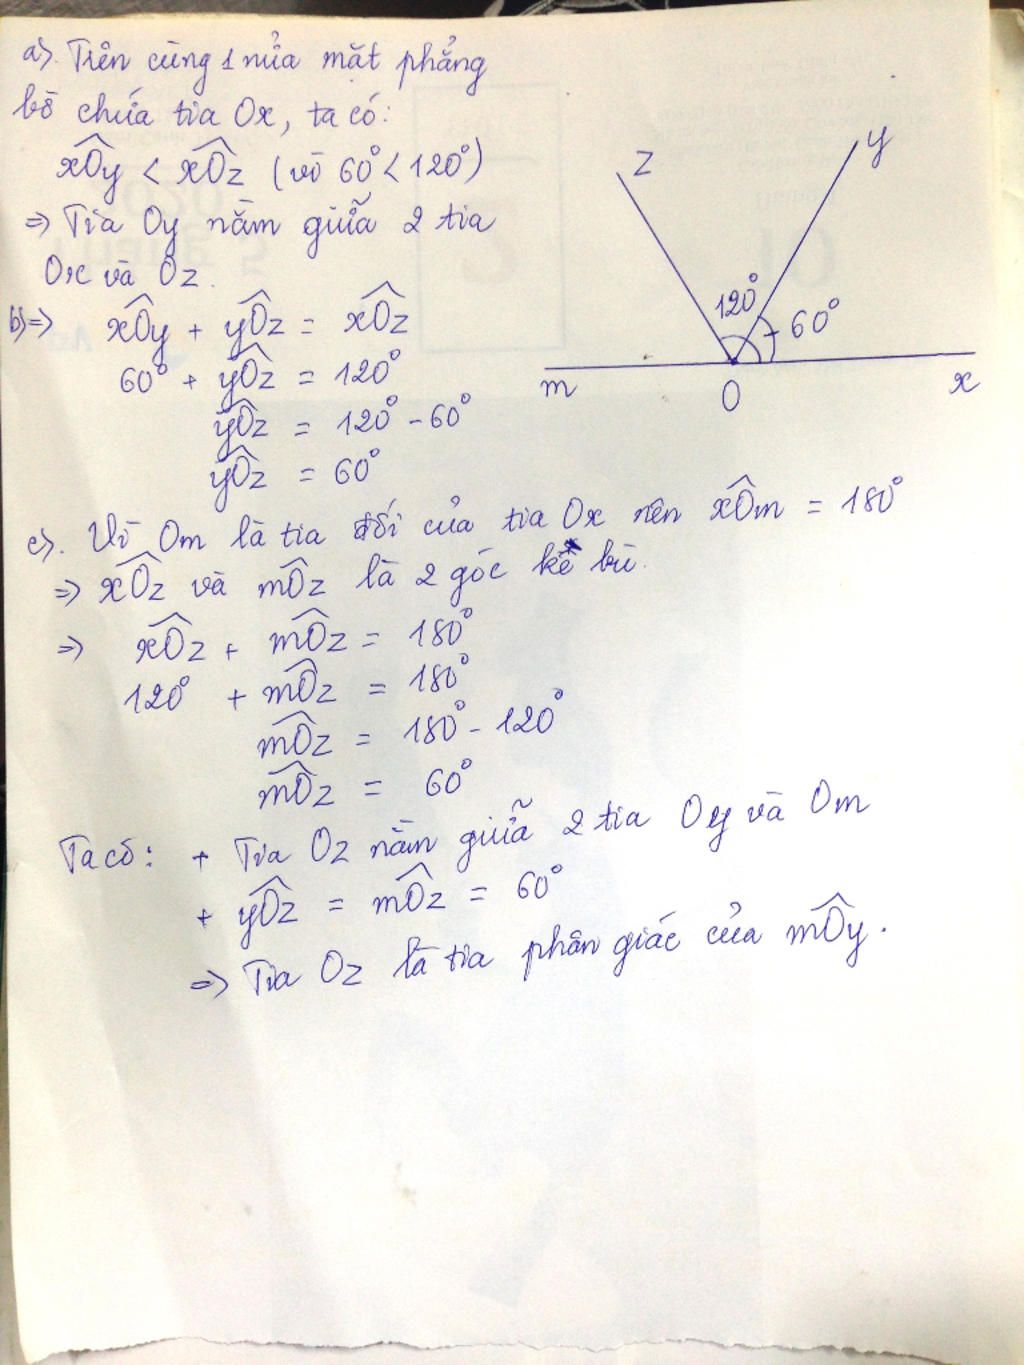 a). Trên cùng 1 nửa mặt phẳng
bờ chứa tia Ox, ta có:
xÔy < xÔz (vì 60° < 120°)
=> Tia Oy nằm giữa 2 tia
Ox và Oz.
b) => xÔy + yÔz = xÔz
60° + yÔz = 120°
yÔz = 120° - 60°
yÔz = 60°
z
y
120°
60°
m
O
x
c). Vì Om là tia đối của tia Ox nên xÔm = 180°
=> xÔz và mÔz là 2 góc kề bù.
=> xÔz + mÔz = 180°
120° + mÔz = 180°
mÔz = 180° - 120°
mÔz = 60°
Ta có: + Tia Oz nằm giữa 2 tia Oy và Om
+ yÔz = mÔz = 60°
=> Tia Oz là tia phân giác của mÔy.